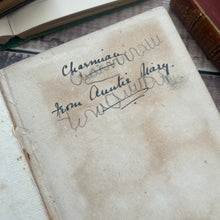 Charmian
from Auntie Mary.